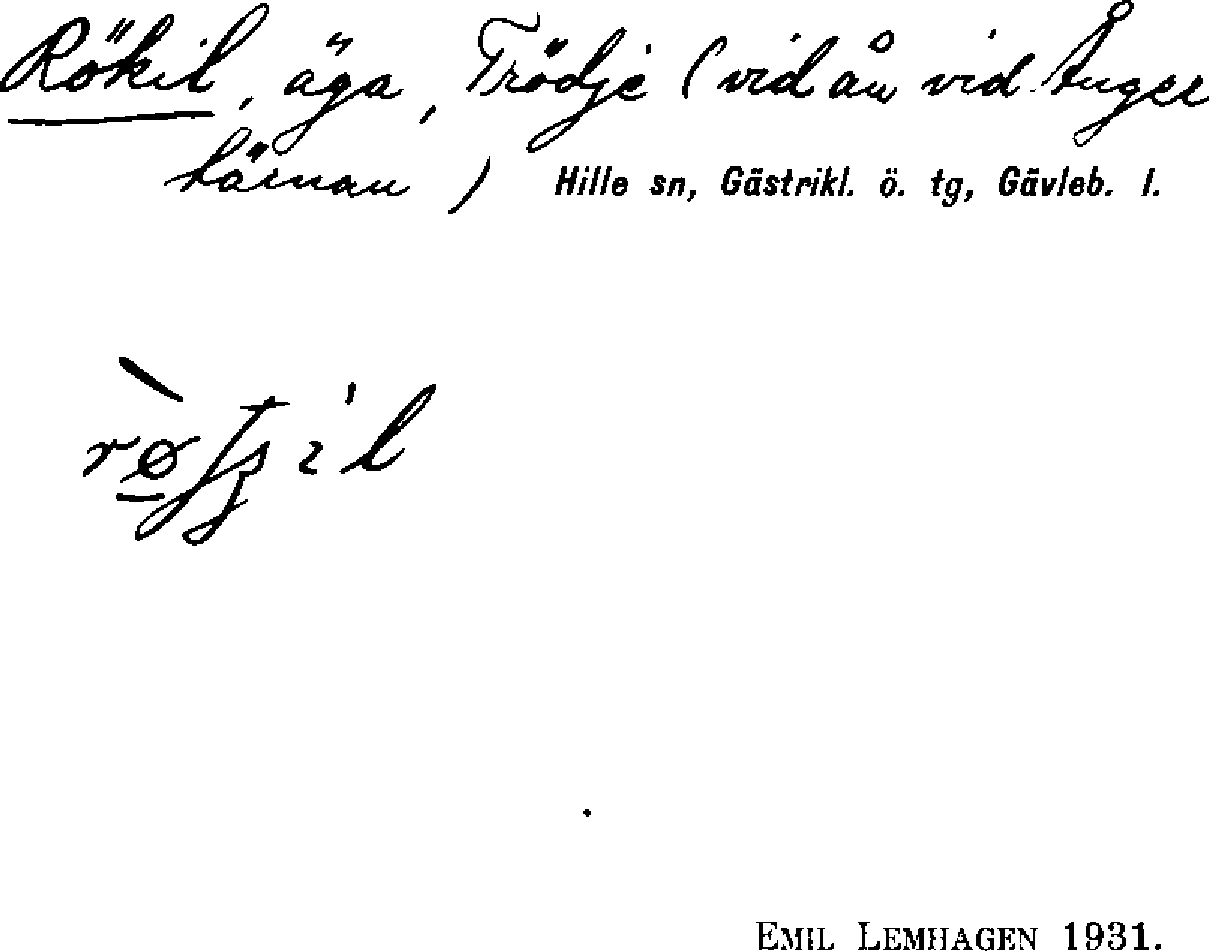 Rökil, äga, Trödje (vid ån vid Ånger
tärnan) Hille sn, Gästrikl. ö. tg, Gävleb. l.
EMIL LEMHAGEN 1931.